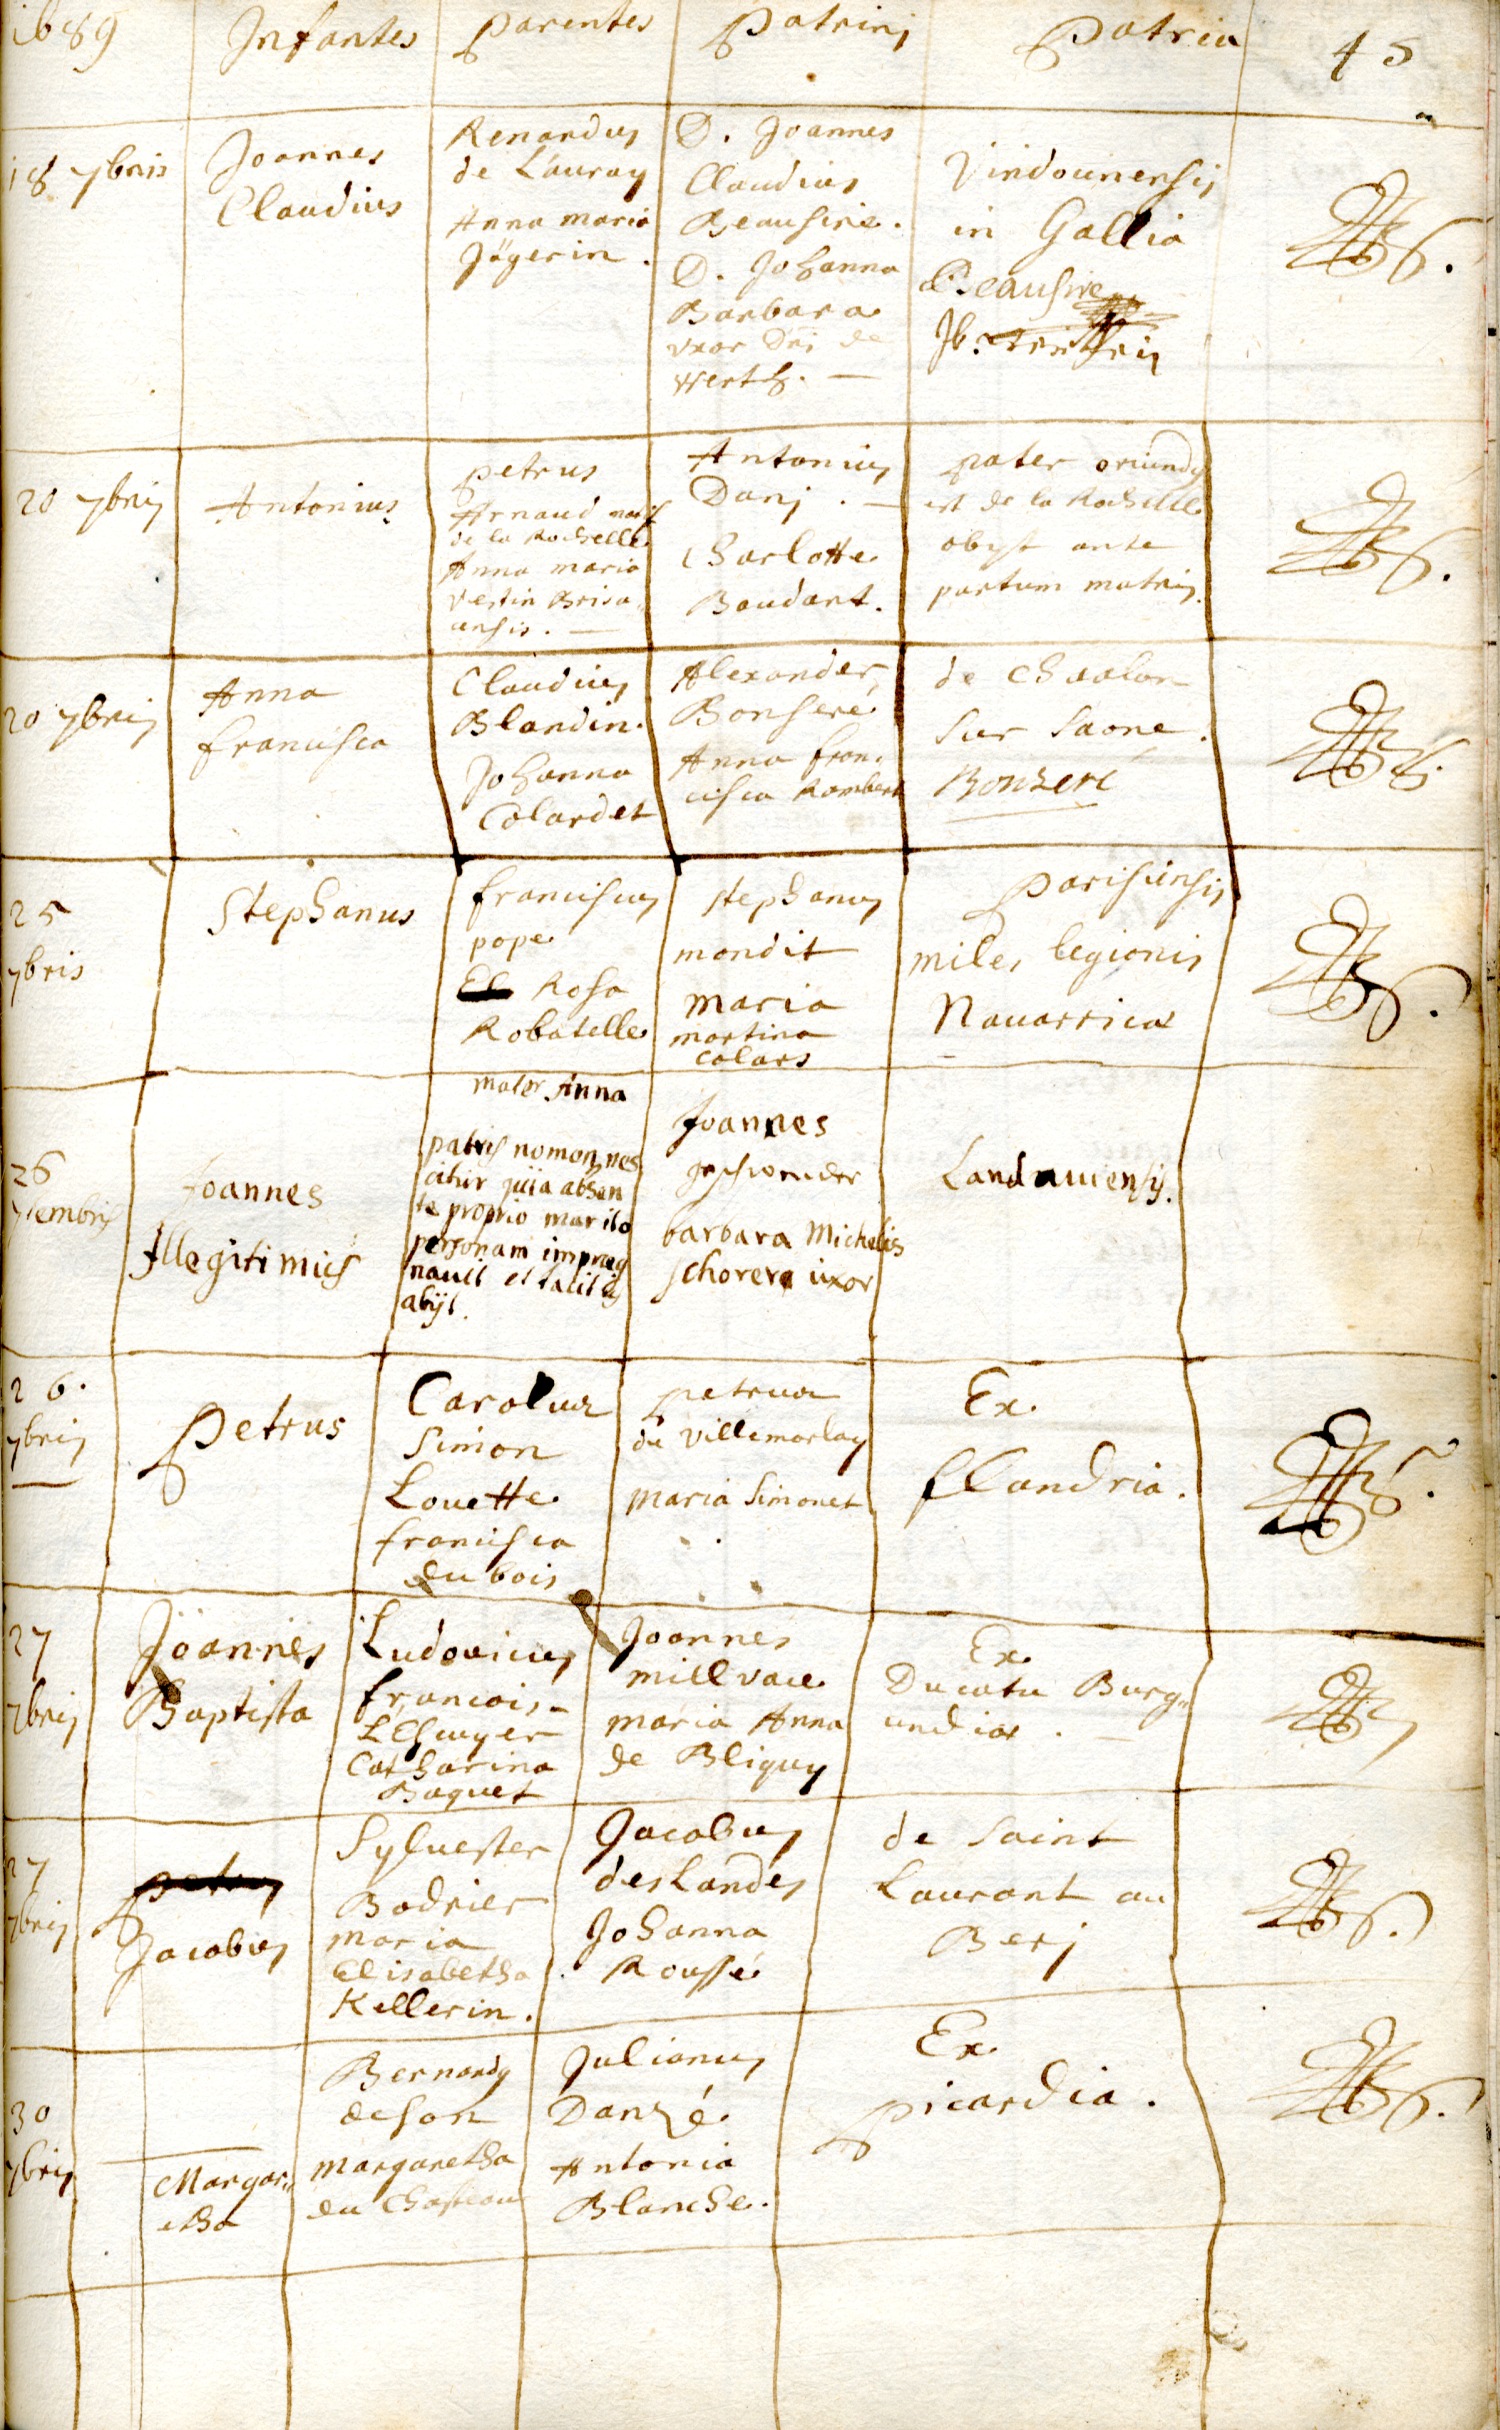 1689 Infantes Parentes Patrinj Patria 45
18 7bris
Joannes
Claudius
Renardus
de Lauray
Anna maria
Jägerin.
D. Joannes
Claudius
Beausire.
D. Johanna
Barbara
vxor Dni de
werth. —
Vindocinensis
in Gallia
Beausire
20 7bris
Antonius
petrus
Arnaud
de la Rochelle
Anna maria
vestin Brisa„
ensis. —
Antonius
Danj. —
Charlotte
Baudart.
pater oriundus
est de la Rochelle
obijt ante
partum matris.
20 7bris
Anna
francisca
Claudius
Blandin.
Johanna
Colardet
Alexander
Bonseré
Anna fran„
cisca Rambert
de Chaalon
sur Saone.
Bonzeré
25
7bris
Stephanus
franciscus
pope
Rosa
Robatelle
stephanus
mondit
maria
martina
calars
Parisiensis
miles legionis
Nauarricæ
26
7tembris
Joannes
Illegitimus
mater Anna
patris nomen nes
citur quia absen
te proprio marito
personam impræg
nauit et tacitus
abijt.
Joannes
geschwender
barbara Michelis
schorere uxor
Landauiensis.
26.
7bris
Petrus
Carolus
Simon
Louette
francisca
du bois
petrus
du villemorlay
maria Simonet
Ex
flandria.
27
7bris
Joannes
Baptista
Ludovicus
francois
LEscuyer
Catharina
Baquet
Joannes
millvace
maria Anna
de Bliquy
Ex
Ducatu Burg„
undiæ. —
27
7bris
petrus
Jacobus
Sylvester
Bodrier
maria
Elisabetha
Kellerin.
Jacobus
deslandes
Johanna
Roussé
de Saint
Laurant au
Berj
30
7bris
Margar„
etha
Bernardus
deson
margaretha
du Chasteau
Julianus
Danzé
Antonia
Blanche.
Ex
picardia.